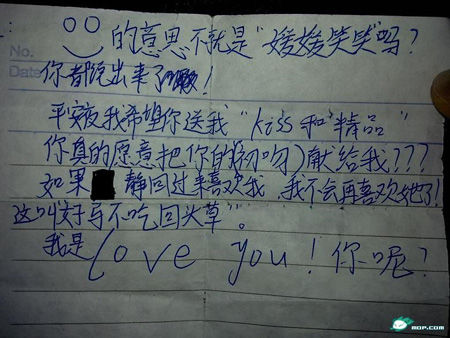 No.
Date
的意思不就是“媛媛笑笑”吗?
你都说出来了嘛!
平安夜我希望你送我“kiss和“精品”
你真的愿意把你的(初吻)献给我???
如果 静回过来喜欢我,我不会再喜欢她了!
这叫好马不吃回头草”。
我是love you!你呢?
MOP.COM